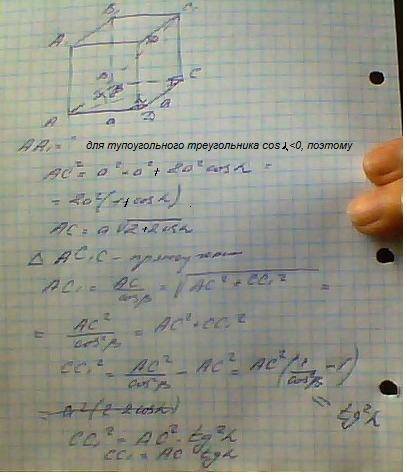 B₁ C₁
A₁ D₁
B C
A a D a
AA₁ =
для тупоугольного треугольника cos λ<0, поэтому
AC² = a² + a² + 2a² cosλ =
= 2a²(1+cosλ)
AC = a√(2+2cosλ)
Δ AC₁C -
AC₁ = AC/cosβ = √(AC² + CC₁²) =
= AC²/cos²β = AC² + CC₁²
CC₁² = AC²/cos²β - AC² = AC²(1/cos²β - 1)
= a²(2-2cosλ) = tg²λ
CC₁² = AC² · tg²λ
CC₁ = AC tgλ